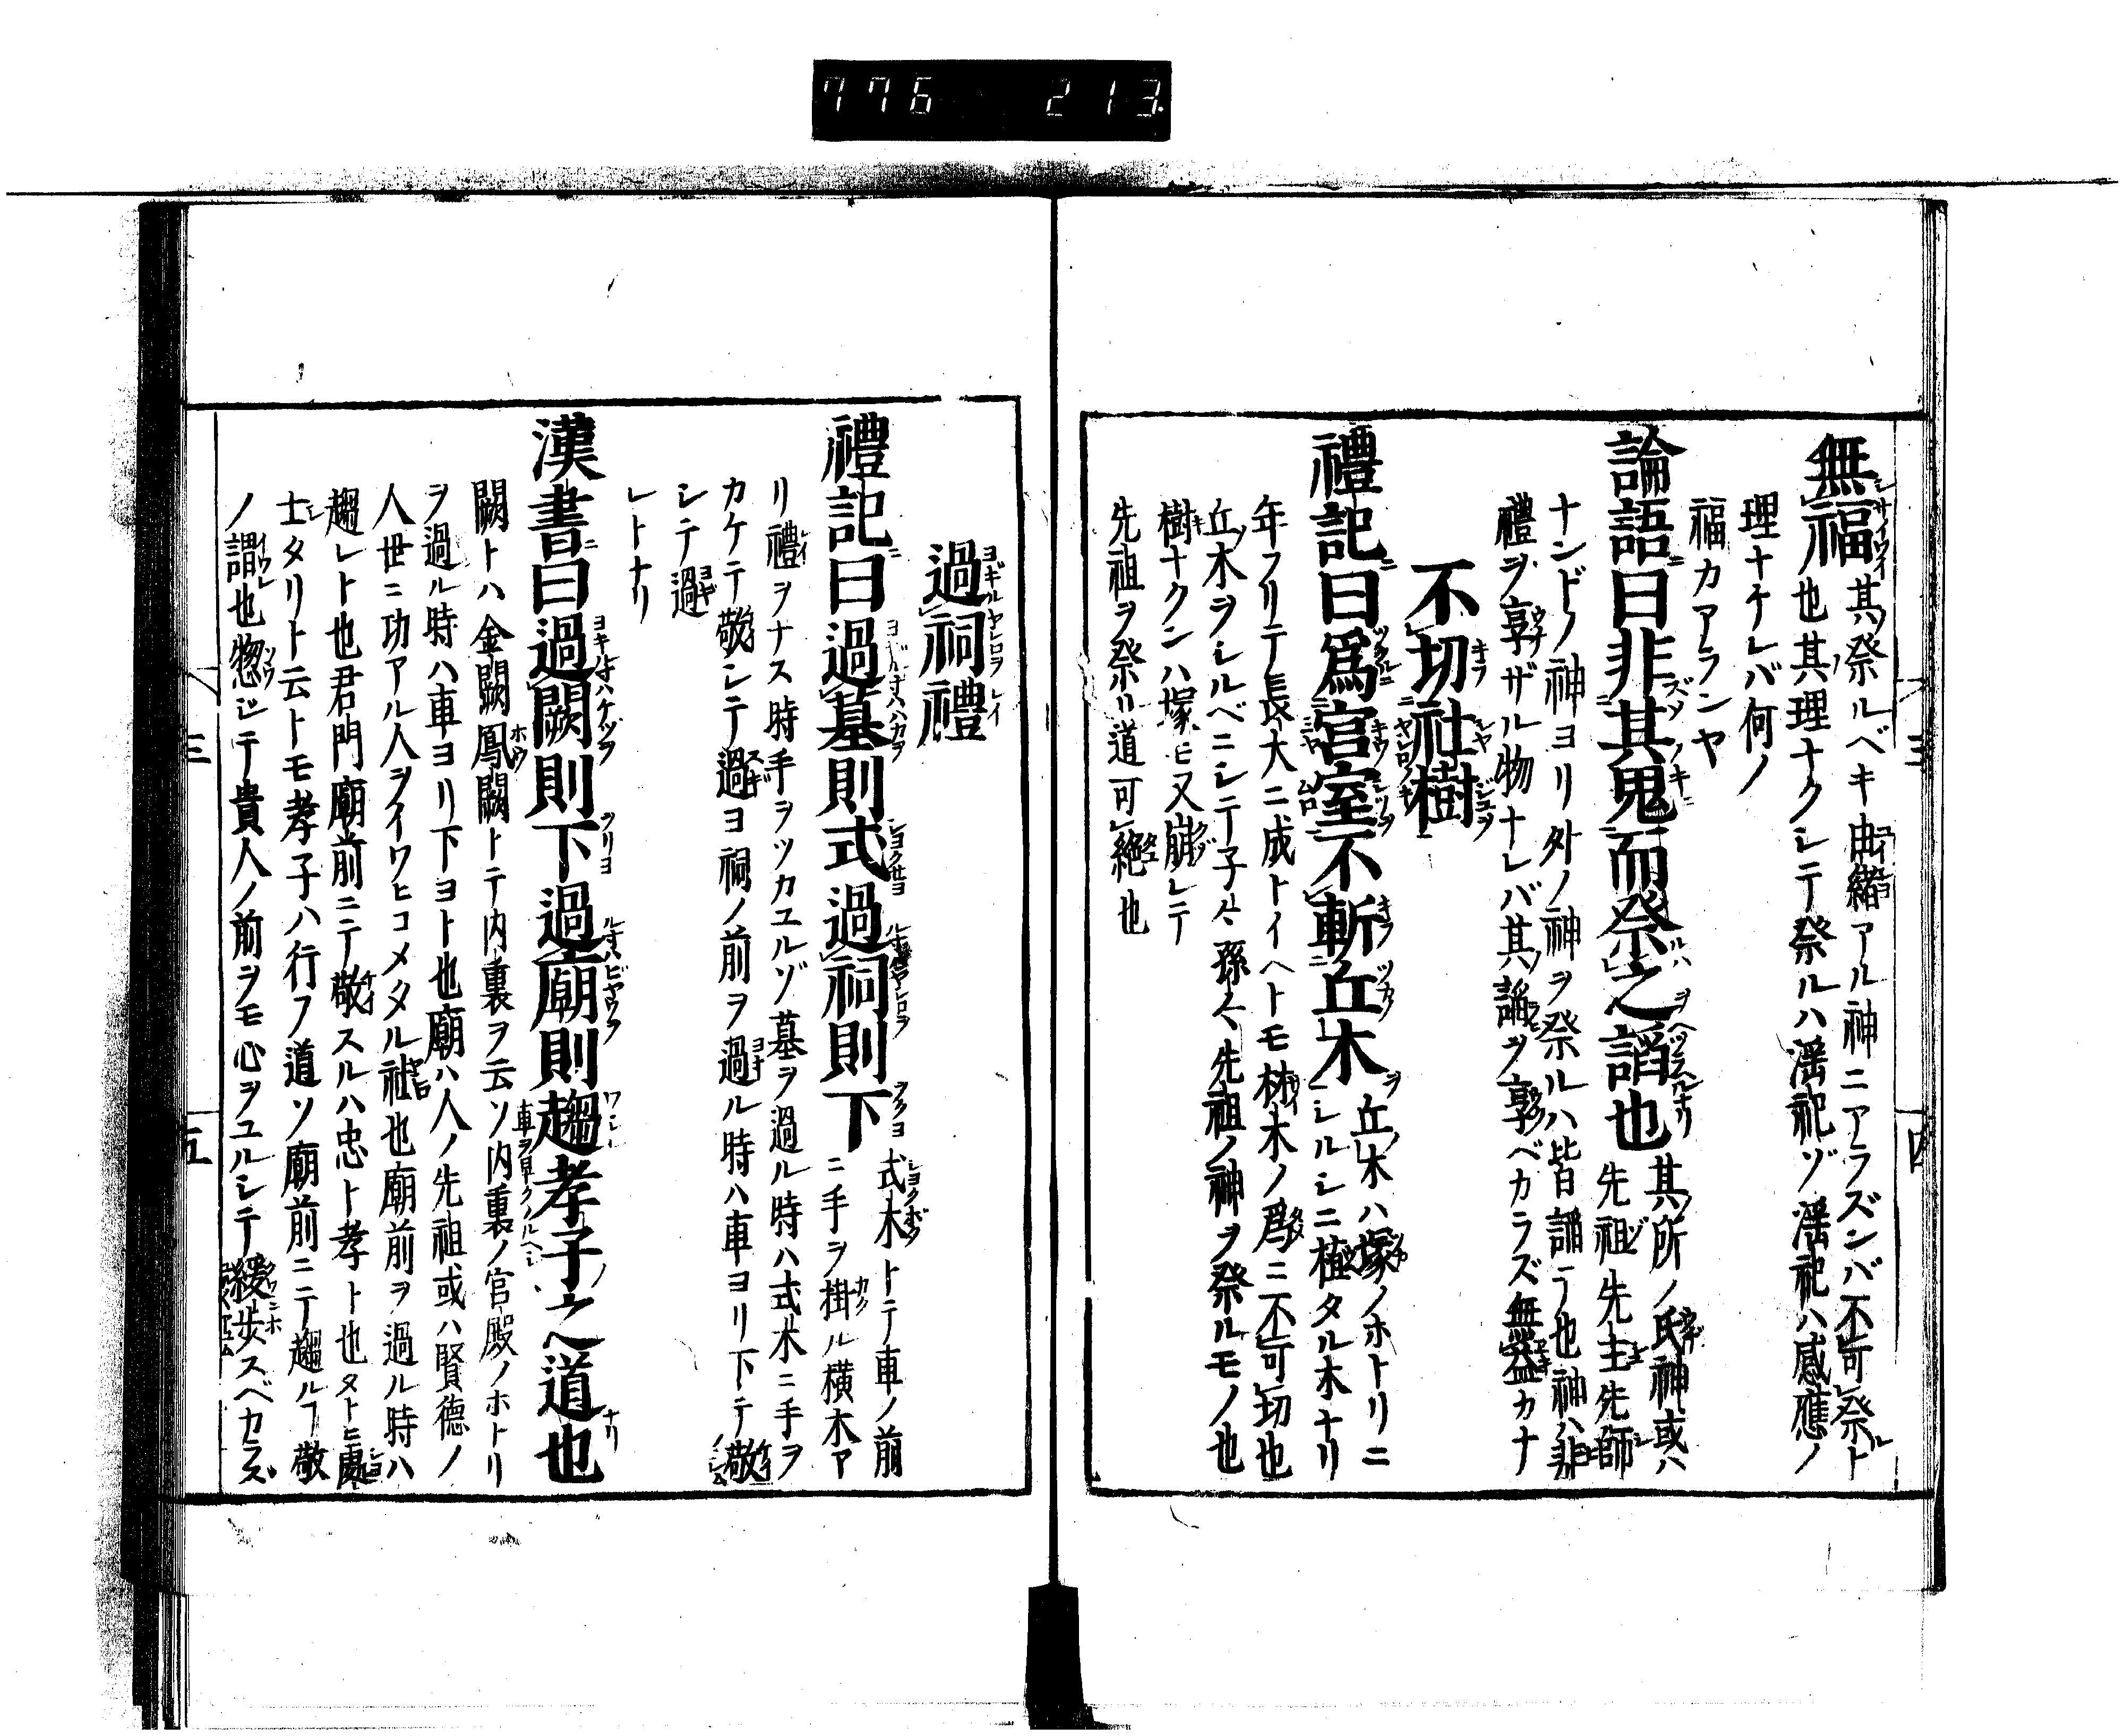 776 213
無福其ノ祭ルベキ由緒アル神ニアラズンバ不可祭ト
也其理ナクシテ祭ルハ淫祀ゾ淫祀ハ感應ノ
理ナケレバ何ノ
福カアランヤ
論語曰非其鬼而祭之謟也其所ノ氏神或ハ
先祖先主先師
ナンドノ神ヨリ外ノ神ヲ祭ルハ皆謟テ也神ハ非
禮ヲ享ザル物ナレバ其謟ヲ享ベカラズ無益カナ
不切社樹
禮記曰爲宮室不斬丘木丘木ハ塚ノホトリニ
シルシニ植タル木ナリ
年フリテ長大ニ成トイヘトモ材木ノ爲ニ不可切也
丘木ヲシルベニシテ子々孫々先祖ノ神ヲ祭ルモノ也
樹ナクンハ塚モ又崩レテ
先祖ヲ祭リ道可絶也
過祠禮
禮記曰過墓則式過祠則下式木トテ車ノ前
ニ手ヲ掛ル横木ア
リ禮ヲナス時手ヲツカユルゾ墓ヲ過ル時ハ式木ニ手ヲ
カケテ敬シテ過ヨ祠ノ前ヲ過ル時ハ車ヨリ下テ敬
シテ過
レトナリ
漢書曰過闕則下過廟則趨孝子之道也
闕トハ金闕鳳闕トテ内裏ヲ云ソ内裏ノ宮殿ノホトリ
ヲ過ル時ハ車ヨリ下ヨト也廟ハ人ノ先祖或ハ賢德ノ
人世ニ功アル人ヲイワヒコメタル社也廟前ヲ過ル時ハ
趨レト也君門廟前ニテ敬スルハ忠ト孝ト也タトヒ處
士タリト云トモ孝子ハ行フ道ソ廟前ニテ趨ルフ敬
ノ謂也惣シテ貴人ノ前ヲモ心ヲユルシテ緩歩スベカラズ
三
五